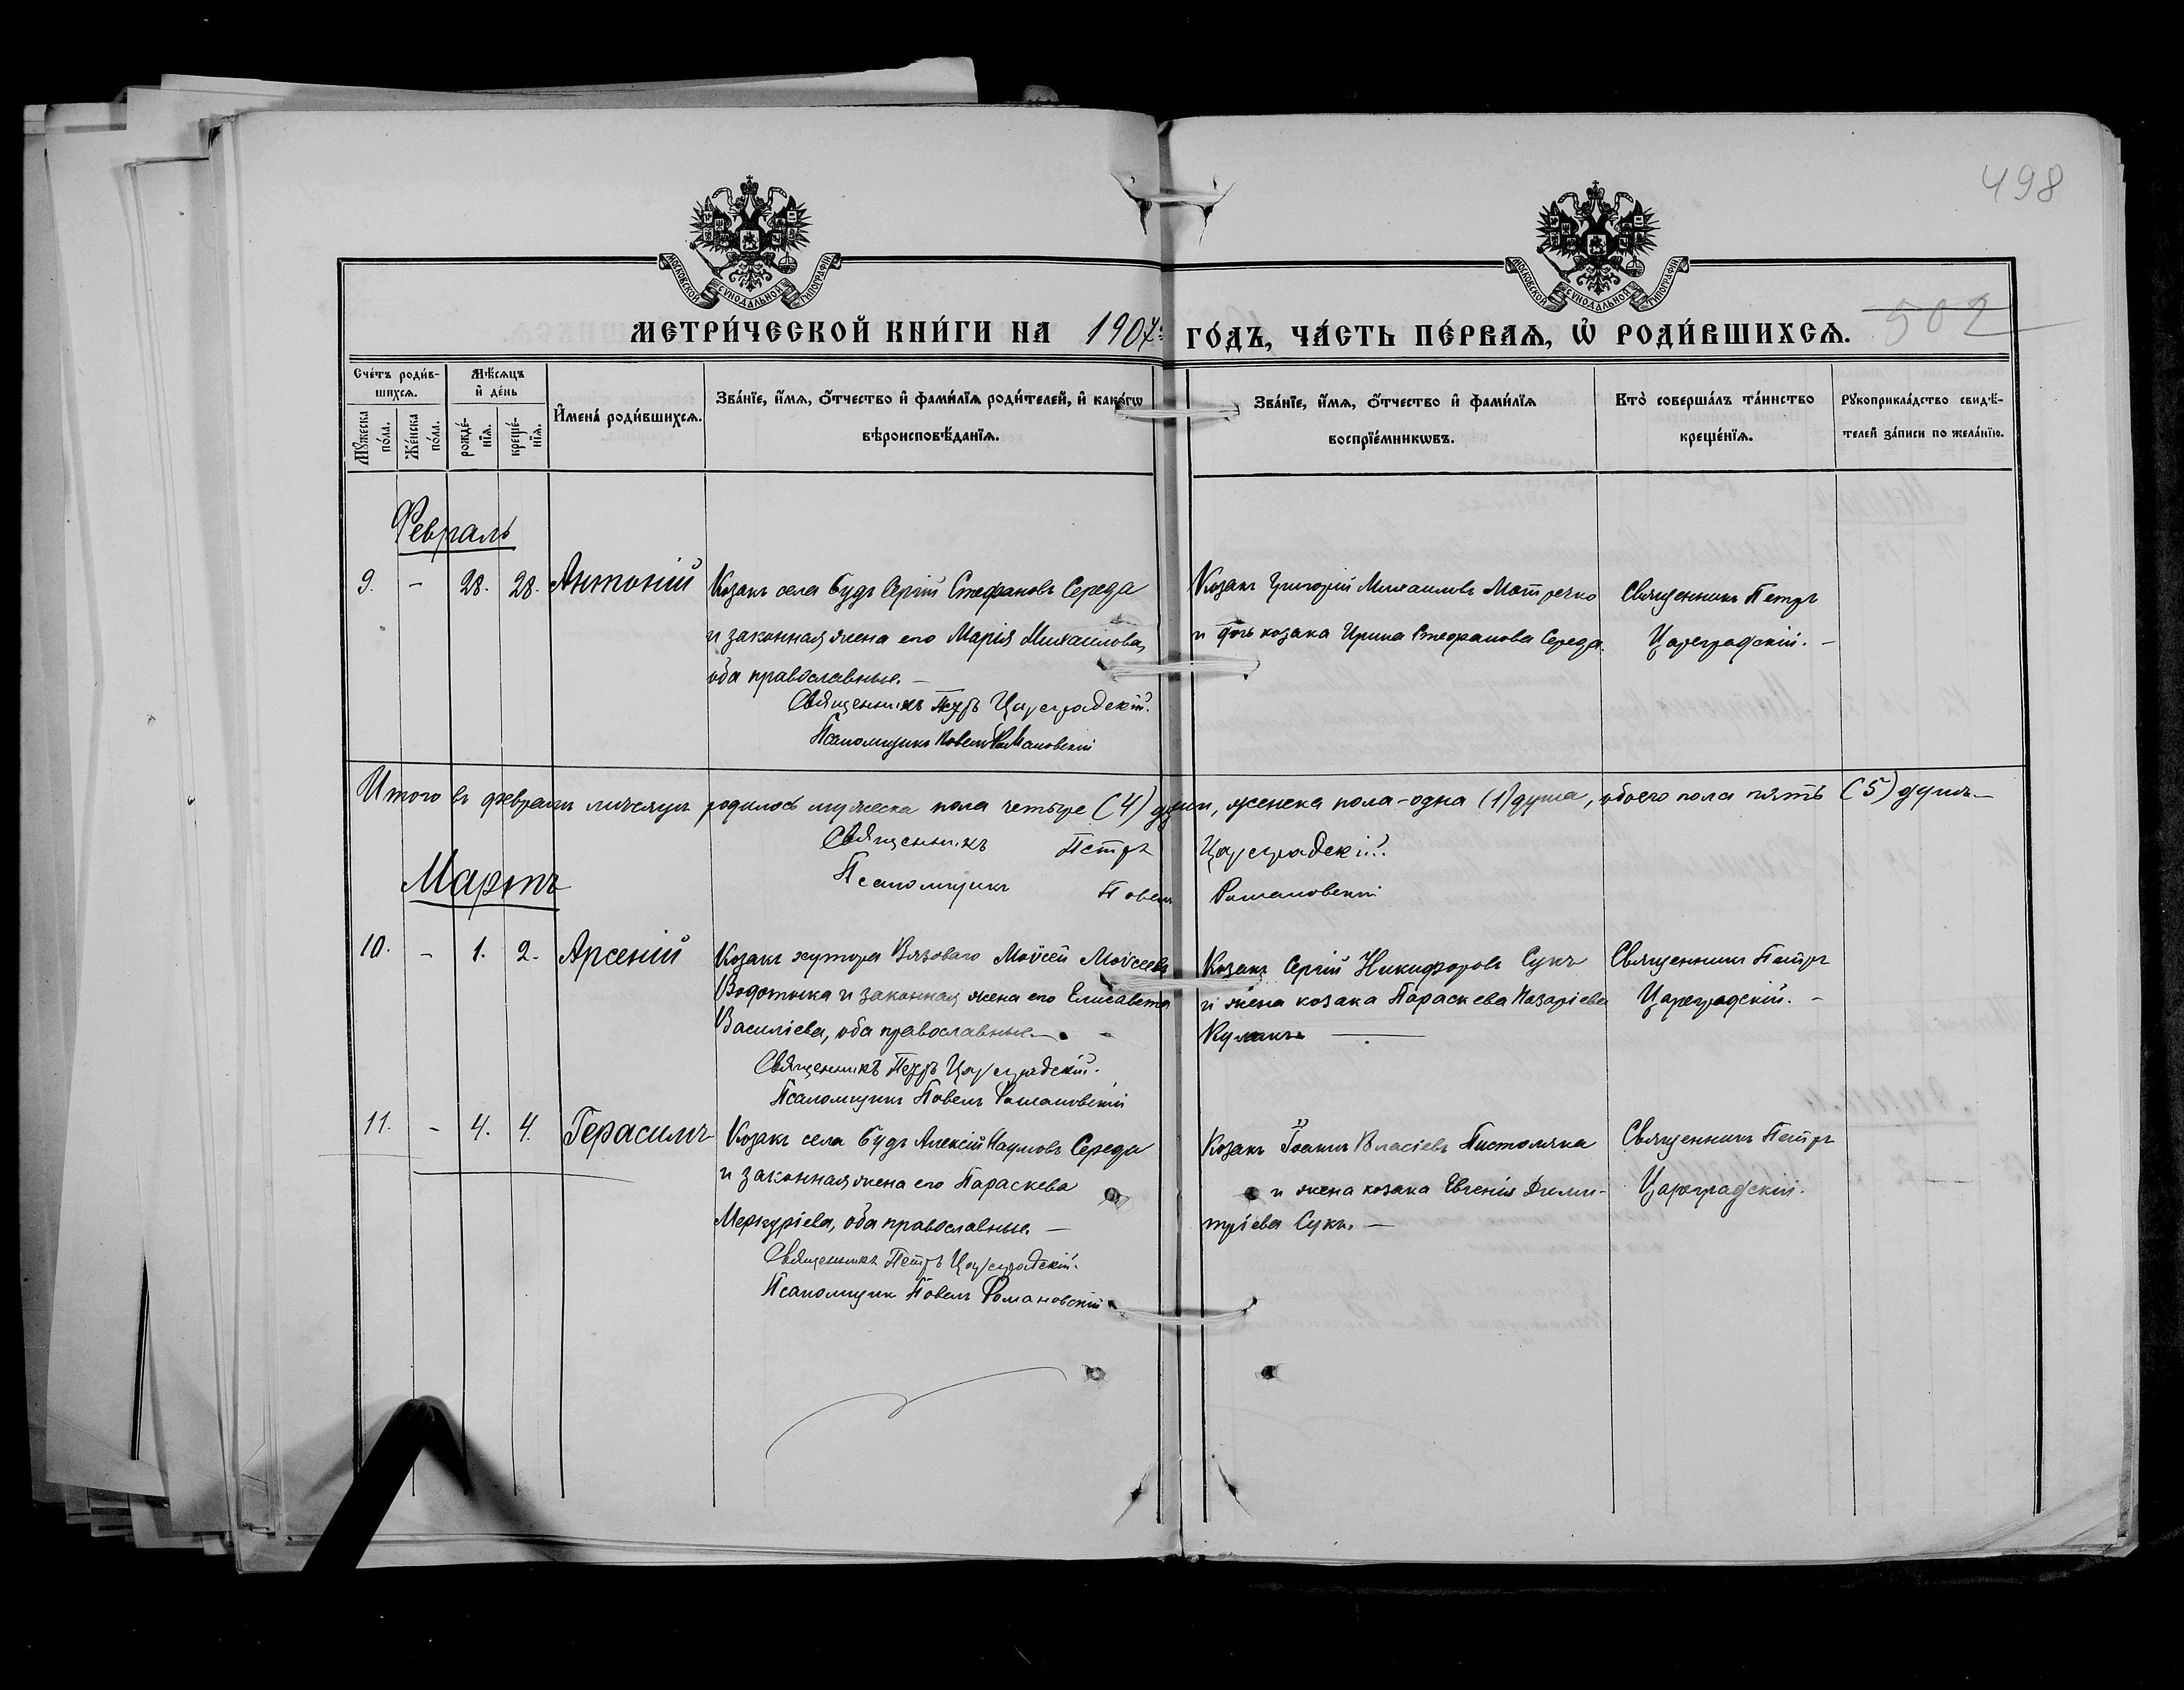 498
МОСКОВСКОЙ СѴНОДАЛЬНОЙ ТИПОГРАФІИ
МОСКОВСКОЙ СѴНОДАЛЬНОЙ ТИПОГРАФІИ
502
МЕТРИ́ЧЕСКОЙ КНИ́ГИ НА 1907 ГО́ДЪ, ЧА́СТЬ ПЕ́РВАѦ, Ѡ҆ РОДИ́ВШИХСѦ.
Сче́тъ роди́в-
шихсѧ.
Мꙋжеска по́ла.
Же́нска по́ла.
Мѣ́сѧцъ и҆ де́нь
рожде́-
нїѧ.
креще́-
нїѧ.
И҆мена̀ роди́вшихсѧ.
Зва́нїе, и҆́мѧ, ѻ҆́тчество и҆ фами́лїѧ роди́телей, и҆ како́гѡ
вѣроисповѣ́данїѧ.
Зва́нїе, и҆́мѧ, ѻ҆́тчество и҆ фами́лїѧ
воспрїе́мникѡвъ.
Кто̀ соверша́лъ та́инство
креще́нїѧ.
Рꙋкоприкла́дство свидѣ́-
телей за́писи по жела́нїю.
Февраль
9. - 28. 28. Антоній Козакъ села Будъ Сергій Стефановъ Середа
и законная жена его Марія Михаилова,
оба православные. —
Священникъ Петръ Цареградскій.
Псаломщикъ Павелъ Романовскій
Козакъ Григорій Михаиловъ Мотречко
и дочь козака Ирина Стефанова Середа.
Священникъ Петръ
Цареградскій. —
Итого въ февралѣ мѣсяцѣ родилось мужеска пола четыре (4) души, женска пола - одна (1) душа, обоего пола пять (5) душъ. —
Священникъ Петръ Цареградскій.
Псаломщикъ Павелъ Романовскій
Мартъ
10. - 1. 2. Арсеній Козакъ хутора Вязоваго Моѵсей Моѵсеевъ
Водотыка и законная жена его Елисавета
Василіева, оба православные. —
Священникъ Петръ Цареградскій.
Псаломщикъ Павелъ Романовскій
Козакъ Сергій Никифоровъ Сукъ
и жена козака Параскева Назаріева
Куликъ —
Священникъ Петръ
Цареградскій. —
11. - 4. 4. Герасимъ Козакъ села Будъ Алексій Наумовъ Середа
и законная жена его Параскева
Меркуріева, оба православные. —
Священникъ Петръ Цареградскій.
Псаломщикъ Павелъ Романовскій
Козакъ Іоаннъ Власіевъ Пистоляка
и жена козака Евгенія Дими-
тріева Сукъ. —
Священникъ Петръ
Цареградскій.